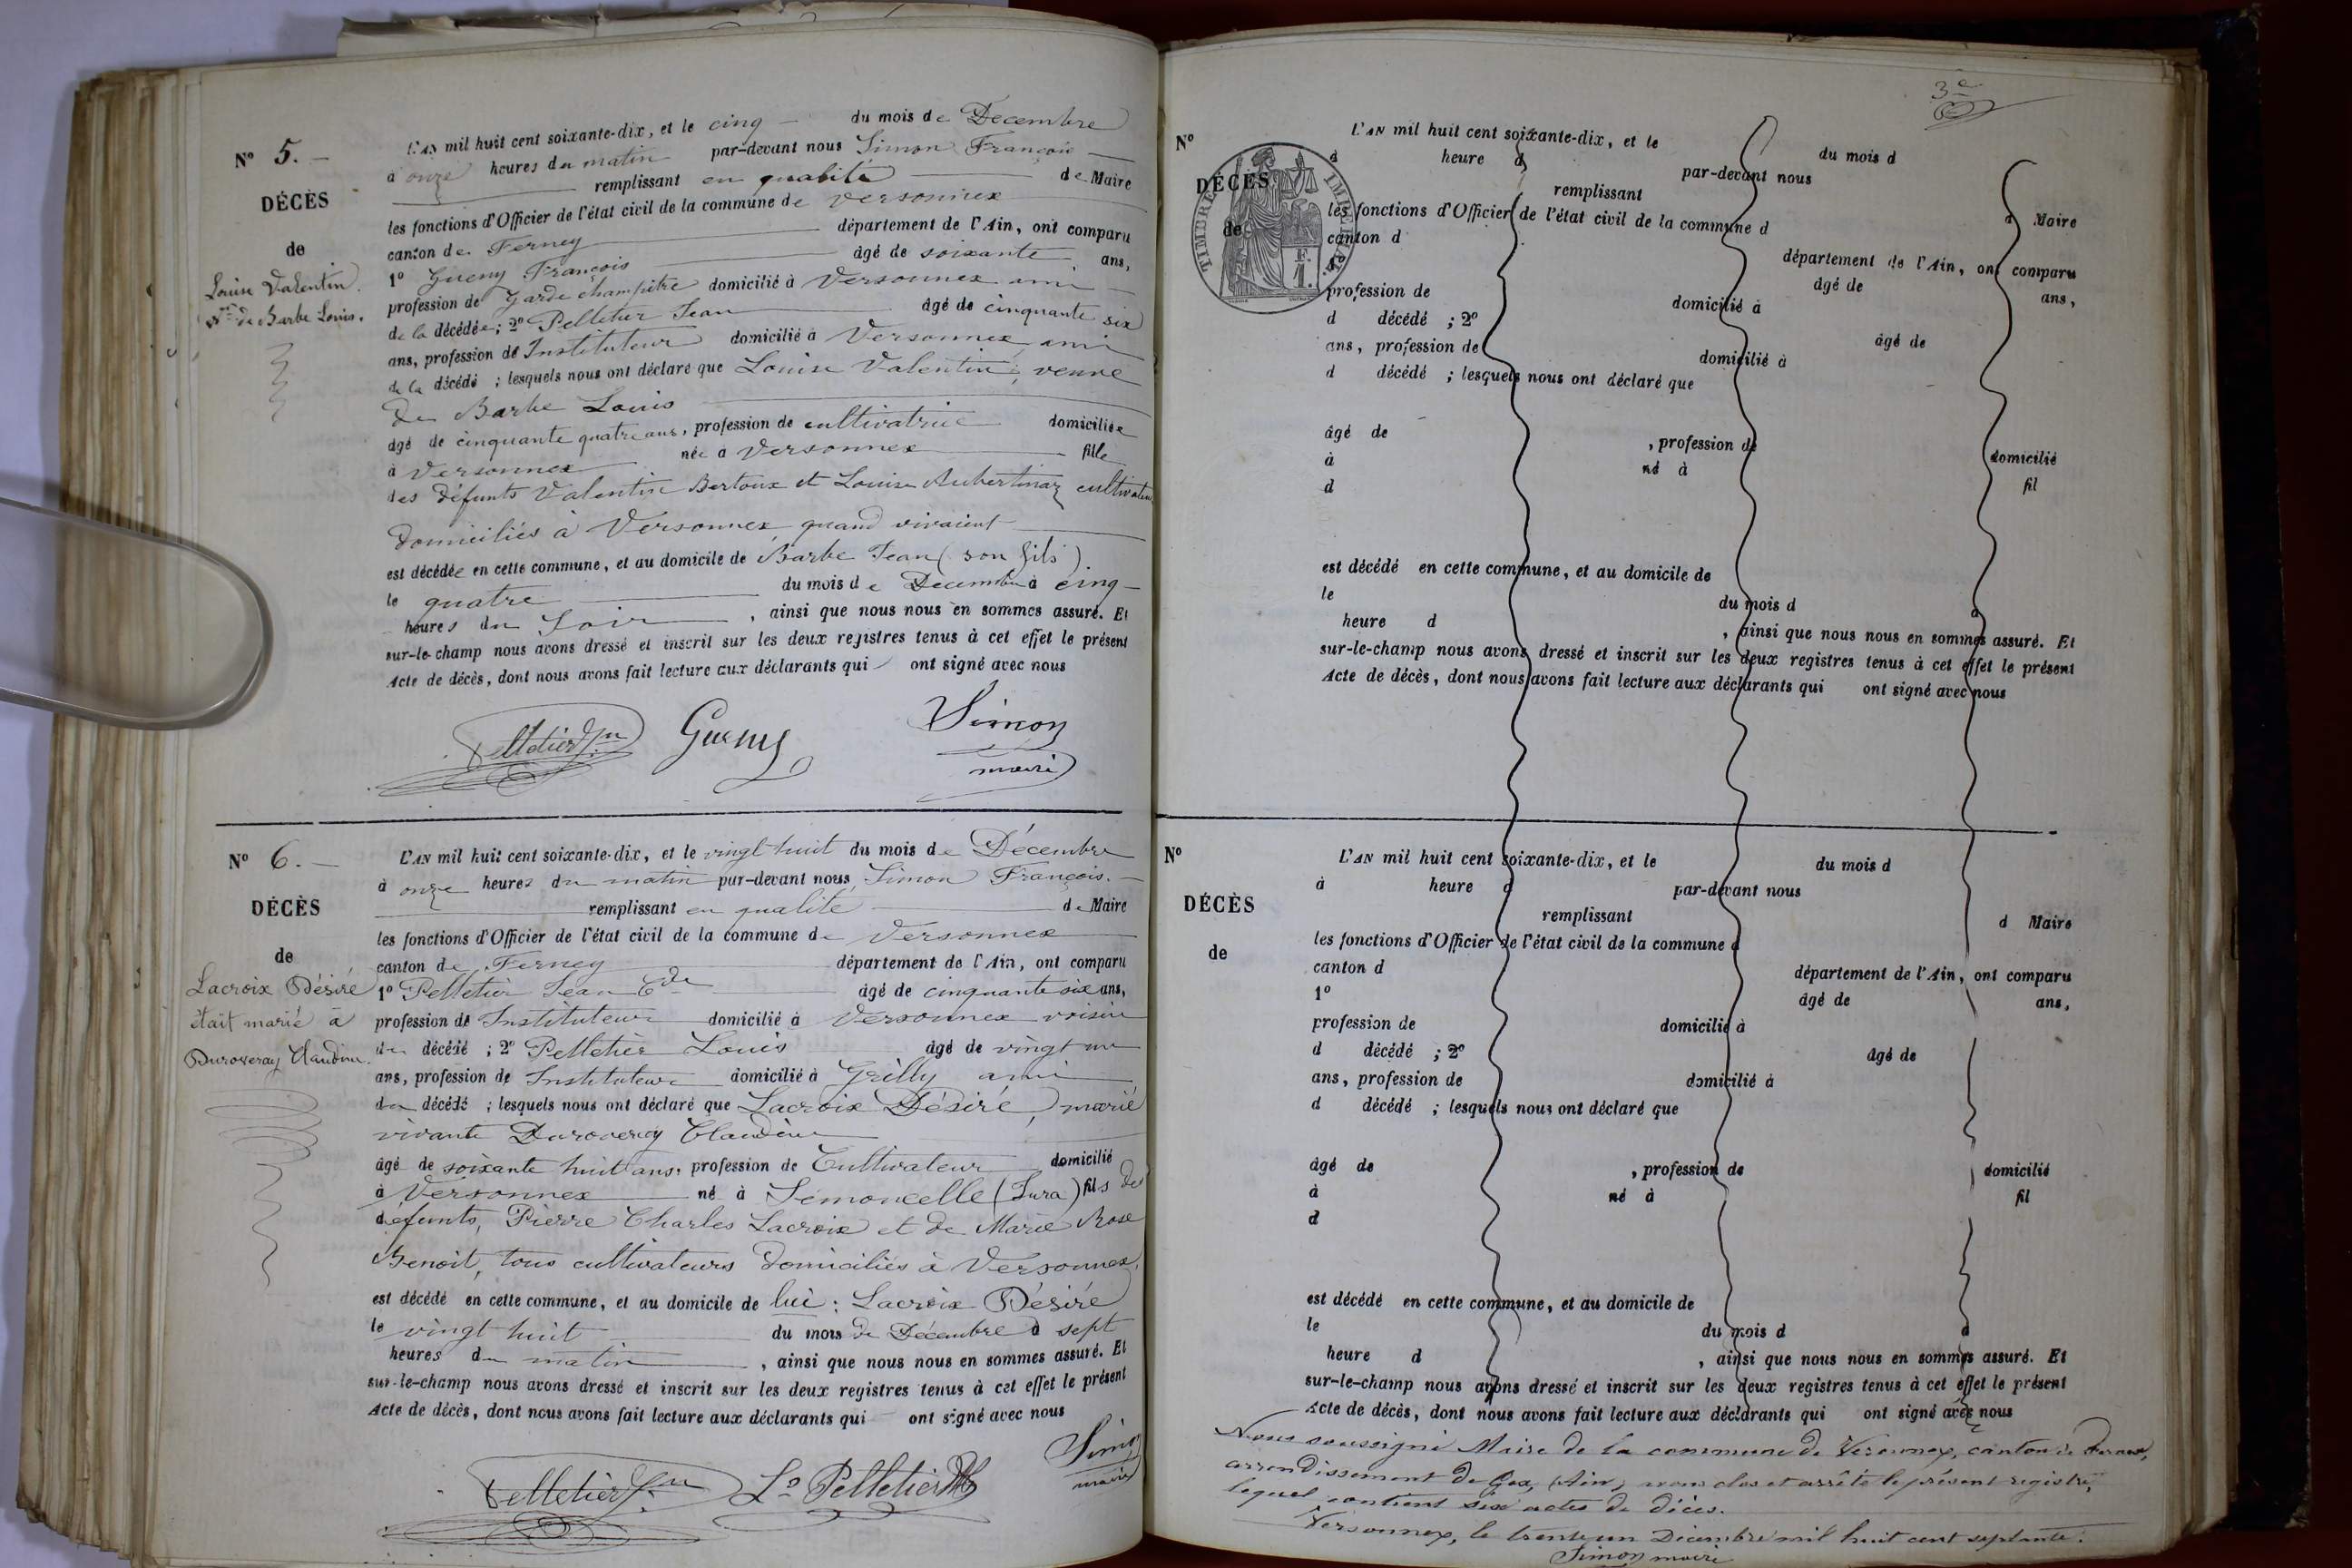 Nº 5. —
DÉCÈS
de
Louise Valentin
vve de Barbe Louis.
L'AN mil huit cent soixante-dix, et le cinq du mois de Decembre
à onze heures du matin par-devant nous Simon François
remplissant en qualité de Maire
les fonctions d'Officier de l'état civil de la commune de Versonnex
canton de Ferney département de l'Ain, ont comparu
1º Gueny François âgé de soixante ans,
profession de Garde champêtre domicilié à Versonnex ami
de la décédée ; 2º Pelletier Jean âgé de cinquante six
ans, profession de Instituteur domicilié à Versonnex ami
de la décédé ; lesquels nous ont déclaré que Louise Valentin, veuve
de Barbe Louis
âgé de cinquante quatre ans, profession de cultivatrice domiciliée
à Versonnex née à Versonnex fille
des défunts Valentin Bertoux et Louise Aubertinaz cultivateurs
domiciliés à Versonnex quand vivaient
est décédée en cette commune, et au domicile de Barbe Jean (son fils)
le quatre du mois de Decembre à cinq
heures du Soir , ainsi que nous nous en sommes assuré. Et
sur-le-champ nous avons dressé et inscrit sur les deux registres tenus à cet effet le présent
Acte de décès, dont nous avons fait lecture aux déclarants qui ont signé avec nous
Pelletier Jn Gueny Simon
maire
Nº 6. —
DÉCÈS
de
Lacroix Désiré
était marié à
Duroveray Claudine.
L'AN mil huit cent soixante-dix, et le vingt huit du mois de Décembre
à onze heures du matin par-devant nous Simon François.
remplissant en qualité de Maire
les fonctions d'Officier de l'état civil de la commune de Versonnex
canton de Ferney département de l'Ain, ont comparu
1º Pelletier Jean âgé de cinquante six ans,
profession de Instituteur domicilié à Versonnex voisin
du décédé ; 2º Pelletier Louis âgé de vingt un
ans, profession de Instituteur domicilié à Grilly ami
du décédé ; lesquels nous ont déclaré que Lacroix Désiré, marié
vivante Duroveray Claudine
âgé de soixante huit ans, profession de Cultivateur domicilié
à Versonnex né à Semoncelle (Jura) fils de
défunts, Pierre Charles Lacroix et de Marie Rose
Benoit, tous cultivateurs domiciliés à Versonnex,
est décédé en cette commune, et au domicile de lui : Lacroix Désiré
le vingt huit du mois de Décembre à sept
heures du matin , ainsi que nous nous en sommes assuré. Et
sur-le-champ nous avons dressé et inscrit sur les deux registres tenus à cet effet le présent
Acte de décès, dont nous avons fait lecture aux déclarants qui ont signé avec nous
Pelletier Jn Ls Pelletier Simon
maire
3e
Nº
DÉCÈS
de
TIMBRE IMPERIAL
1 F.
L'AN mil huit cent soixante-dix, et le du mois d
à heure d par-devant nous
remplissant d Maire
les fonctions d'Officier de l'état civil de la commune d
canton d département de l'Ain, ont comparu
1º âgé de ans,
profession de domicilié à
d décédé ; 2º âgé de
ans, profession de domicilié à
d décédé ; lesquels nous ont déclaré que
âgé de , profession de domicilié
à né à fil
d
est décédé en cette commune, et au domicile de
le du mois d à
heure d , ainsi que nous nous en sommes assuré. Et
sur-le-champ nous avons dressé et inscrit sur les deux registres tenus à cet effet le présent
Acte de décès, dont nous avons fait lecture aux déclarants qui ont signé avec nous
Nº
DÉCÈS
de
L'AN mil huit cent soixante-dix, et le du mois d
à heure d par-devant nous
remplissant d Maire
les fonctions d'Officier de l'état civil de la commune d
canton d département de l'Ain, ont comparu
1º âgé de ans,
profession de domicilié à
d décédé ; 2º âgé de
ans, profession de domicilié à
d décédé ; lesquels nous ont déclaré que
âgé de , profession de domicilié
à né à fil
d
est décédé en cette commune, et au domicile de
le du mois d à
heure d , ainsi que nous nous en sommes assuré. Et
sur-le-champ nous avons dressé et inscrit sur les deux registres tenus à cet effet le présent
Acte de décès, dont nous avons fait lecture aux déclarants qui ont signé avec nous
Nous soussigné Maire de la commune de Versonnex, canton de
arrondissement de Gex, (Ain) avons clos et arrêté le présent registre,
lequel contient six actes de décès.
Versonnex, le trente un Décembre mil huit cent septante.
Simon maire